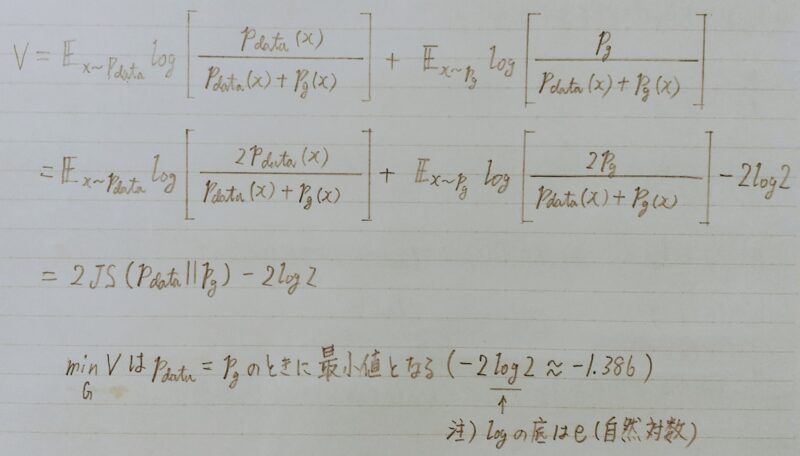 V = 𝔼_{x~p_{data}} log [ p_{data}(x) / (p_{data}(x) + p_g(x)) ] + 𝔼_{x~p_g} log [ p_g / (p_{data}(x) + p_g(x)) ]
= 𝔼_{x~p_{data}} log [ 2p_{data}(x) / (p_{data}(x) + p_g(x)) ] + 𝔼_{x~p_g} log [ 2p_g / (p_{data}(x) + p_g(x)) ] - 2log2
= 2JS(p_{data}||p_g) - 2log2
min_G V は p_{data} = p_g のときに最小値となる (-2log2 ≈ -1.386)
↑
注) logの底はe (自然対数)